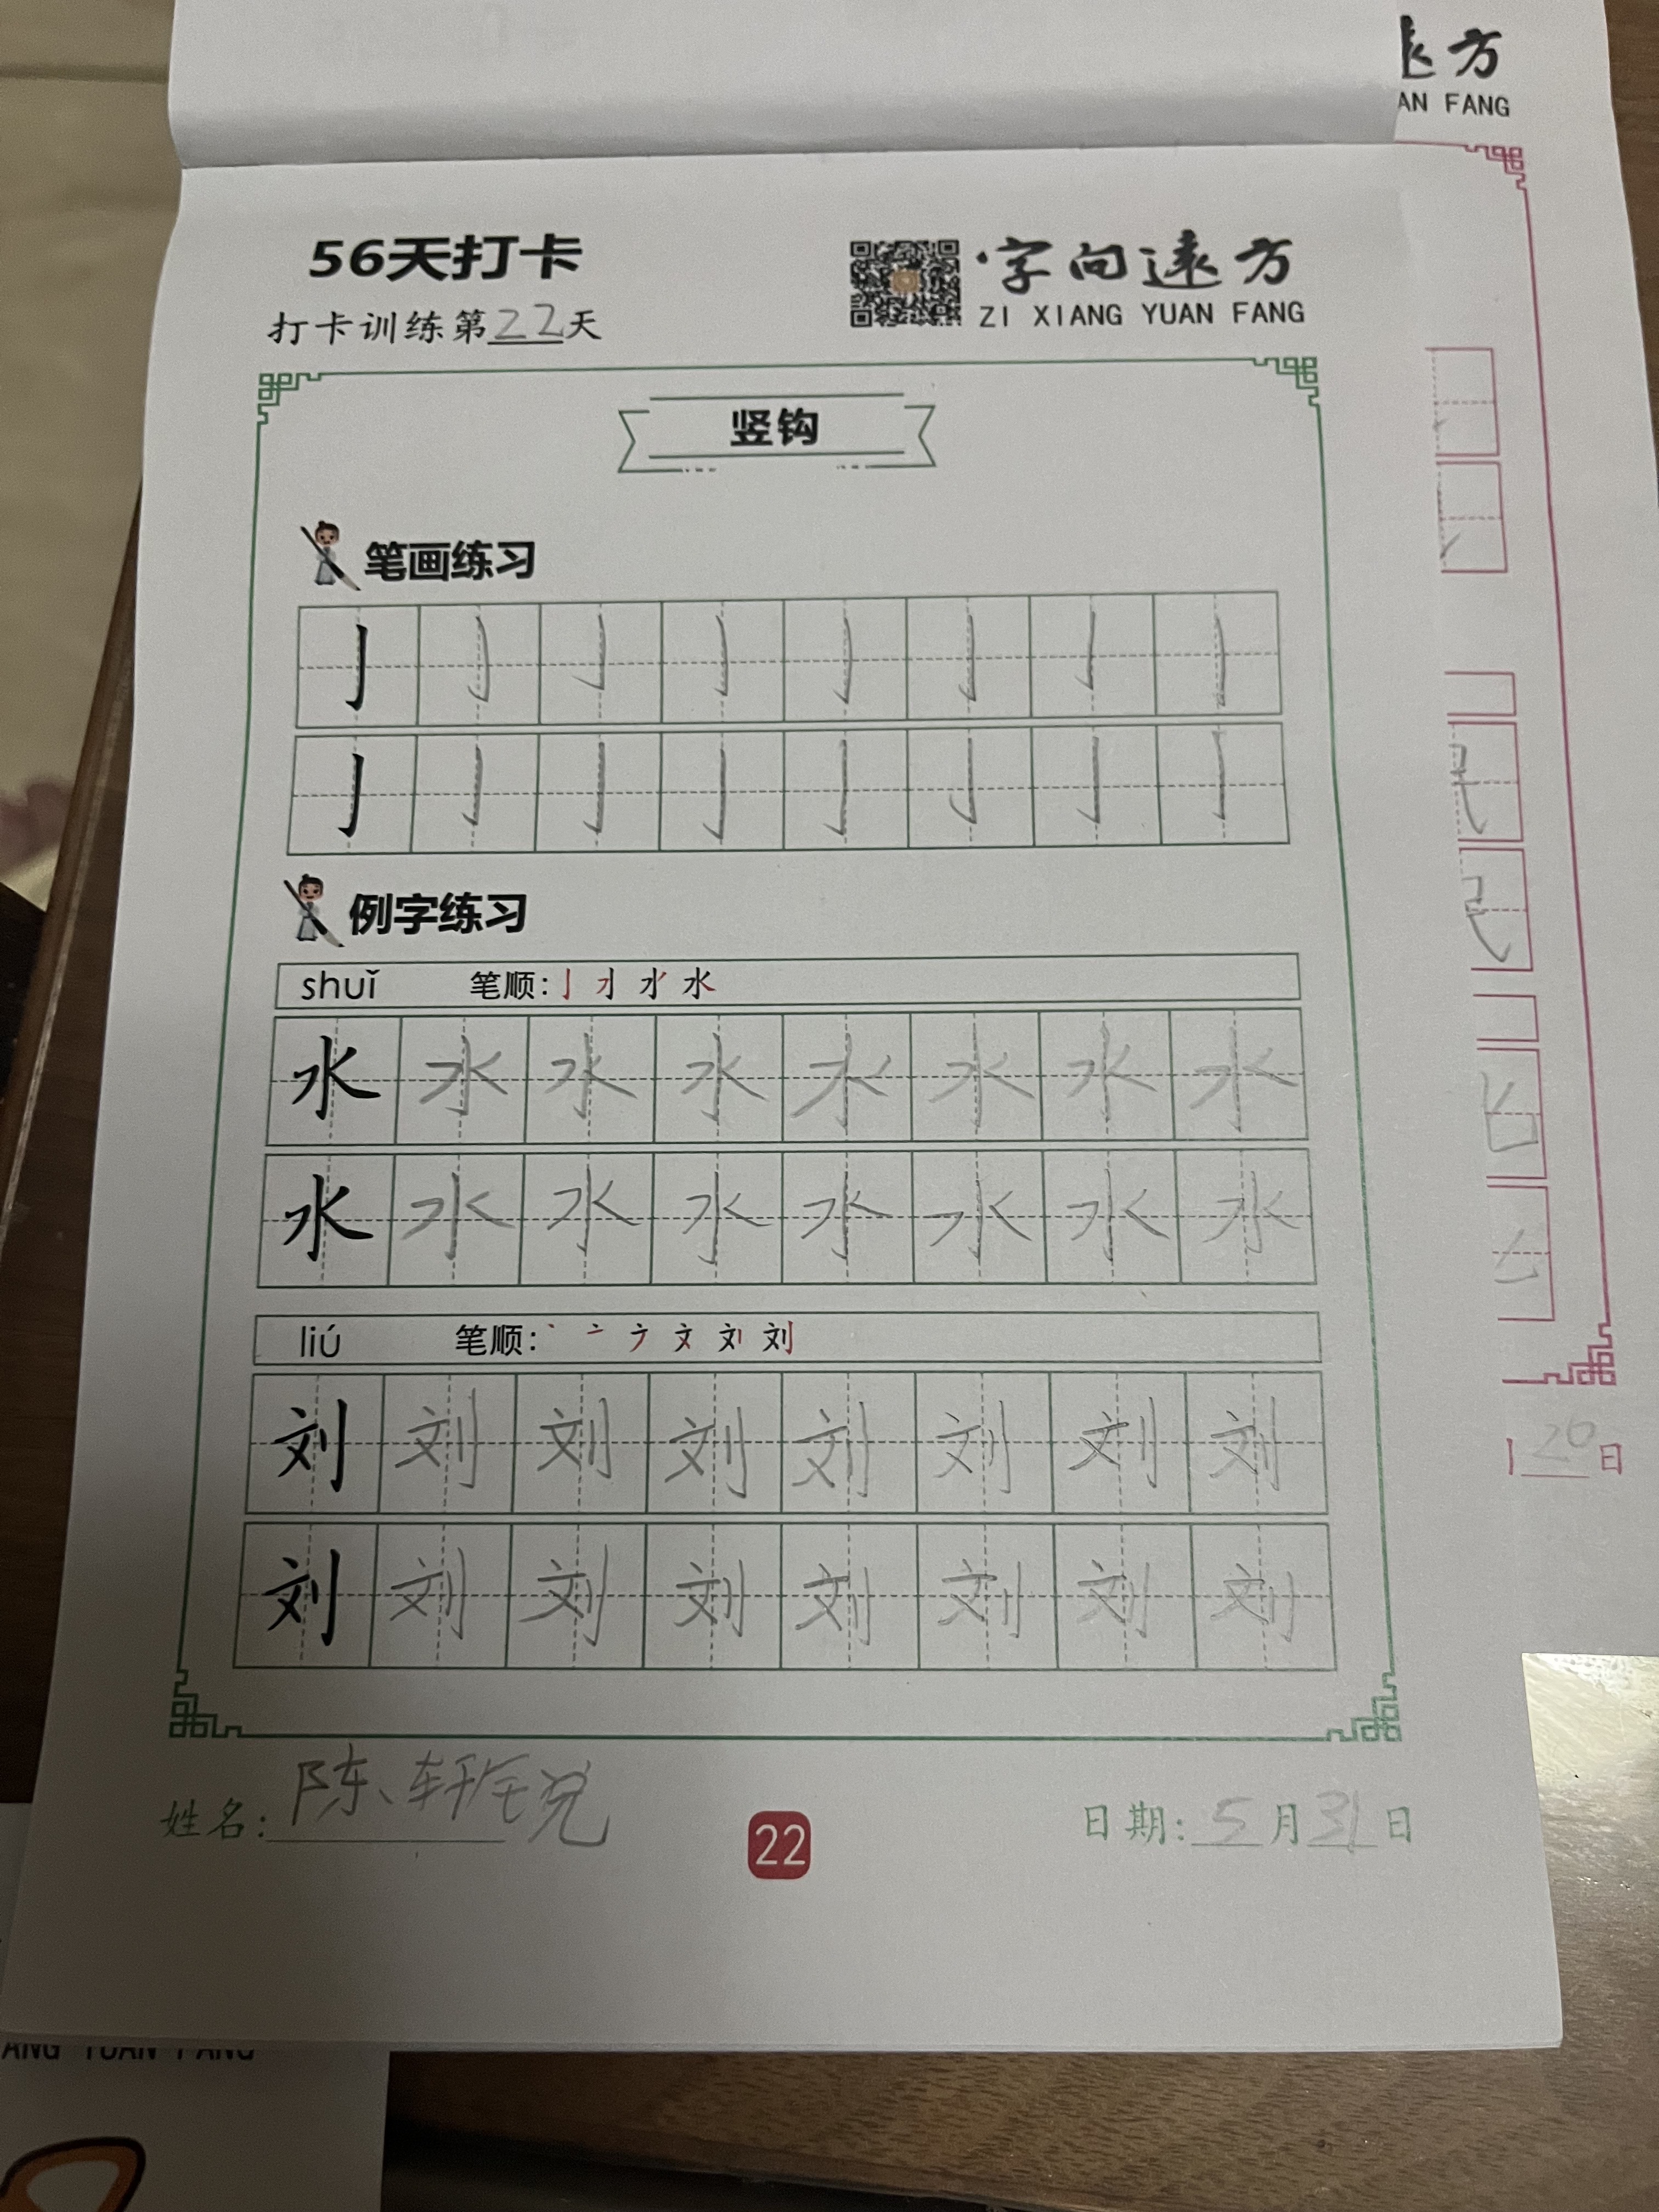 远方
AN FANG
56天打卡
字向远方
打卡训练第22天
ZI XIANG YUAN FANG
竖钩
笔画练习
亅亅亅亅亅亅亅亅
亅亅亅亅亅亅亅亅
例字练习
shuǐ 笔顺:亅 水
水水水水水水水水
水水水水水水水水
liú 笔顺:丶 亠 文 刘
刘刘刘刘刘刘刘刘
刘刘刘刘刘刘刘刘
20日
姓名:陈轩
22
日期:5月31日
ANG YUAN FANG